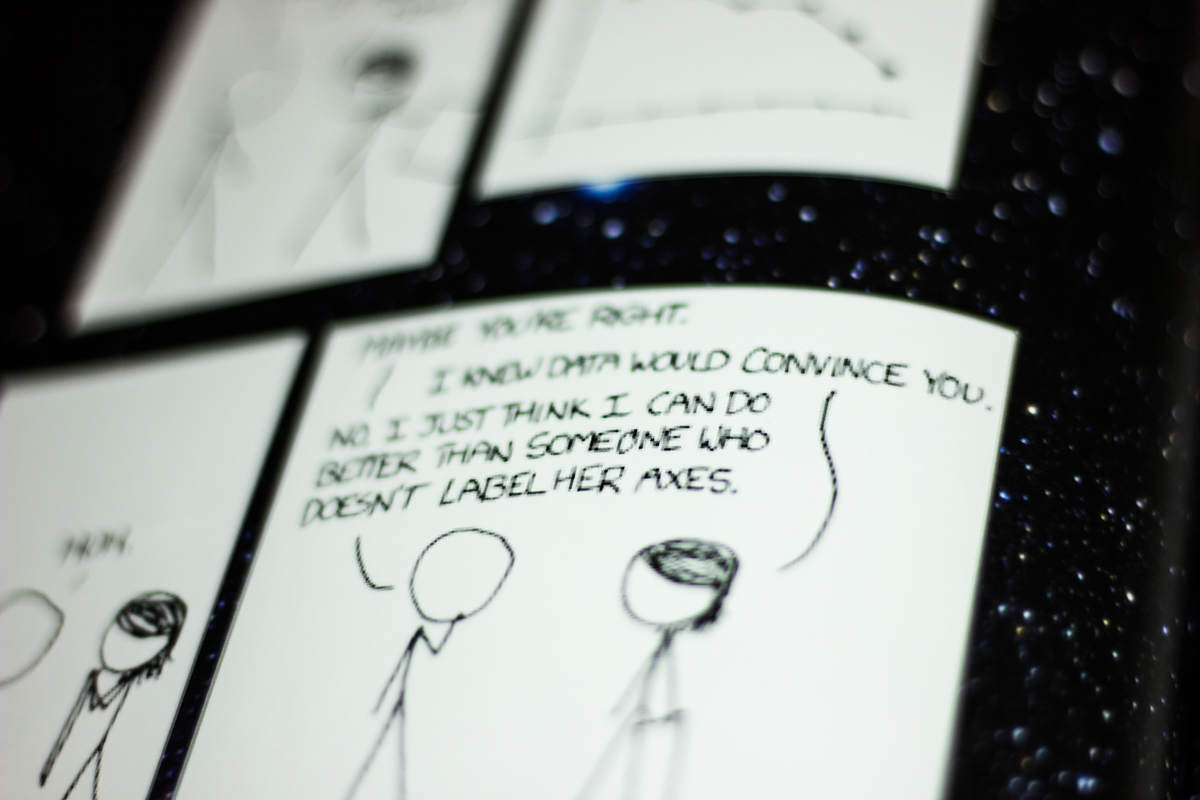 MAYBE YOU'RE RIGHT.
I KNEW DATA WOULD CONVINCE YOU.
NO. I JUST THINK I CAN DO
BETTER THAN SOMEONE WHO
DOESN'T LABEL HER AXES.